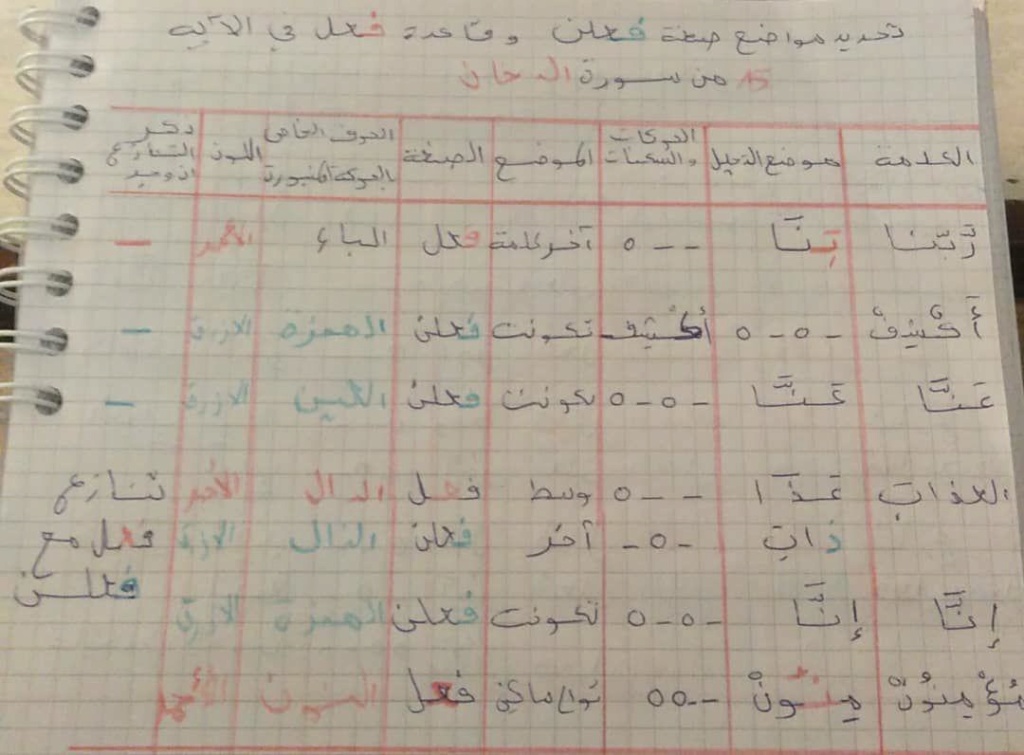 تحديد مواضع صيغة فعلن وقاعدة فعل في الآية
15 من سورة الدخان
الكلمة موضع الدليل الحركات والسكنات الموضع الصيغة الحرف الخاص بالحركة المنبورة اللون ذكر التنازع
رَبَّنا بَّنَا --o آخر كلمة فعل الباء الأحمر -
أكْشِفْ أكْشِف -o-o تكونت فعلن الهمزة الازرق -
عَنَّا عَنَّا -o-o تكونت فعلن العين الازرق -
العذاب عَذَا --o وسط فعل الذال الأحمر تنازع
ذَابَ -o- آخر فعلن الذال الازرق فعل مع
فعلن
إنَّا إنَّا -o-o تكونت فعلن الهمزة الازرق
مُؤْمِنُونْ مِنُونْ --oo فعل النون الأحمر